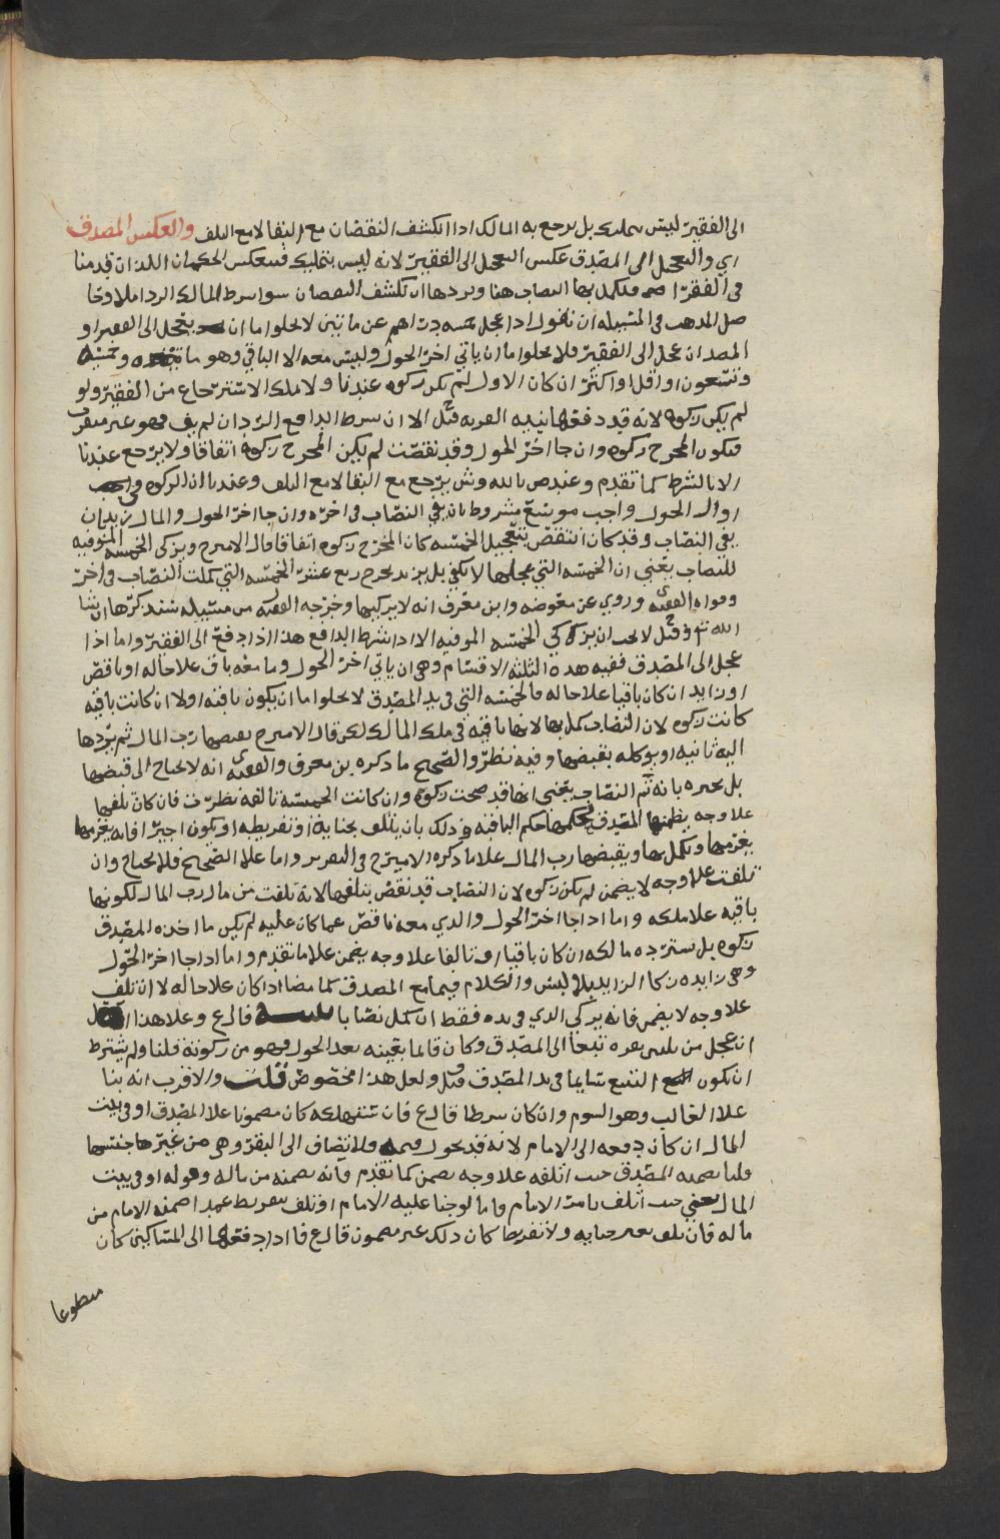 الى الفقير ليس بتمليك بل يرجع به المالك اذا انكشف النقصان مع البقا لا مع التلف والعكس المصدق
اي والتعجيل الى المصدق عكس التعجيل الى الفقير لانه ليس بتمليك فينعكس الحكمان اللذان قدمنا
في الفقير فيكمل بها النصاب هنا ويردها ان انكشف النقصان سوا شرط المالك الرد ام لا وحا
صل المذهب في المسيله ان نقول اذا عجل خمسه دراهم عن ماتين لا يخلوا اما ان يعجل الى الفقير او
المصدق ان عجل الى الفقير فلا يخلوا اما ان ياتي اخر الحول وليس معه الا الباقي وهو مايه وخمسه
وتسعون او اقل او اكثر ان كان الاول لم يكن زكوه عندنا ولا ملك الاسترجاع من الفقير ولو
لم يكن زكوه لانه قد دفعها بنيه القربه قيل الا ان شرط الدافع الرد ان لم يف فهو غير متقرب
فيكون المخرج زكوه وان جا اخر الحول وقد نقصت لم يكن المخرج زكوه اتفاقا ولا يرجع عندنا
الا بالشرط كما تقدم وعند ص بالله وش يرجع مع البقا لا مع التلف وعندنا ان الزكوه في
اول الحول واجب موسع مشروط بان بقي النصاب في اخره وان جا اخر الحول والمال زايد بان
بقي النصاب وقد كان انتقص بتعجيل الخمسه كان المخرج زكوه اتفاقا قال الاميرح ويزكى الخمسه الموفيه
للنصاب يعني ان الخمسه التي عجلها لا تكفي بل يزيد يخرج ربع عشر الخمسه التي كملت النصاب في اخره
وقواه الفقيه ى وروي عن معوضه وابن معرف انه لا يزكيها وخرجه الفقيه من مسيله سنذكرها ان شا
الله تع وقيل لا يجب ان يزكي الخمسه الموفيه الا اذا شرط الدافع هذا اذا دفع الى الفقير واما اذا
عجل الى المصدق ففيه هذه الثلثه الاقسام وهي ان ياتي اخر الحول وما معه باق علا حاله او ناقص
او زايد ان كان باقيا علا حاله فالخمسه التي في يد المصدق لا يخلوا اما ان يكون باقيه او لا ان كانت باقيه
كانت زكوه لان النصاب كمل بها لانها باقيه في ملك المالك لكن قال الاميرح يقبضها رب المال ثم يردها
اليه ثانيه او يوكله بقبضها وفيه نظر والصحيح ما ذكره بن معرف والفقيه ى انه لا يحتاج الى قبضها
بل يخبره بانه تم النصاب يعني انها قد صحت زكوه وان كانت الخمسه تالفه نظرت فان كان تلفها
علا وجه يضمنها المصدق فحكمها حكم الباقيه وذلك بان يتلف بجنايه او تفريطه او يكون اجيرا فانه يغرمها
يغرمها وتكمل بها ويقبضها رب المال علا ما ذكره الاميرح في التقرير واما علا الصحيح فلا يحتاج وان
تلفت علا وجه لا يضمن لم يكن زكوه لان النصاب قد نقص بتلفها لانه تلفت من مال رب المال لكونها
باقيه علا ملكه واما اذا جا اخر الحول والذي معه ناقص عما كان عليه لم يكن ما اخذه المصدق
زكوه بل يسترده مالكه ان كان باقيا او تالفا علا وجه يضمن علا ما تقدم واما اذا جا اخر الحول
وهي زايده زكا الزايد بلا لبس والكلام فيما مع المصدق كما مضا اذا كان علا حاله لا ان تلف
علا وجه لا يضمن فانه يزكي الذي في يده فقط ان كمل نصابا قال ع وعلا هذا
ان عجل من ثلثين بقره تبيعا الى المصدق وكان قايما بعينه بعد الحول فهو من زكوته قلنا ولم يشترط
ان يكون التبيع سايما في يد المصدق قيل ولعل هذا مخصوص قلت والاقرب انه بنا
علا الغالب وهو السوم وان كان شرطا قال ع فان استهلكه كان مضمونا علا المصدق او في بيت
المال ان كان دفعه الى الامام لانه قد تحول قيمه ولا تضاف الى البقر وهي من غير جنسها
وانما يضمنه المصدق حيث اتلفه علا وجه يضمن كما تقدم فانه يضمنه من ماله وقوله او في بيت
المال يعني حيث اتلف بامر الامام فاما لو جنا عليه الامام او تلف بتفريط عمدا ضمنه الامام من
ماله فان تلف بغير جنايه ولا تفريط كان ذلك غير مضمون قال ع فاذا دفعها الى المساكين كان
متطوعا